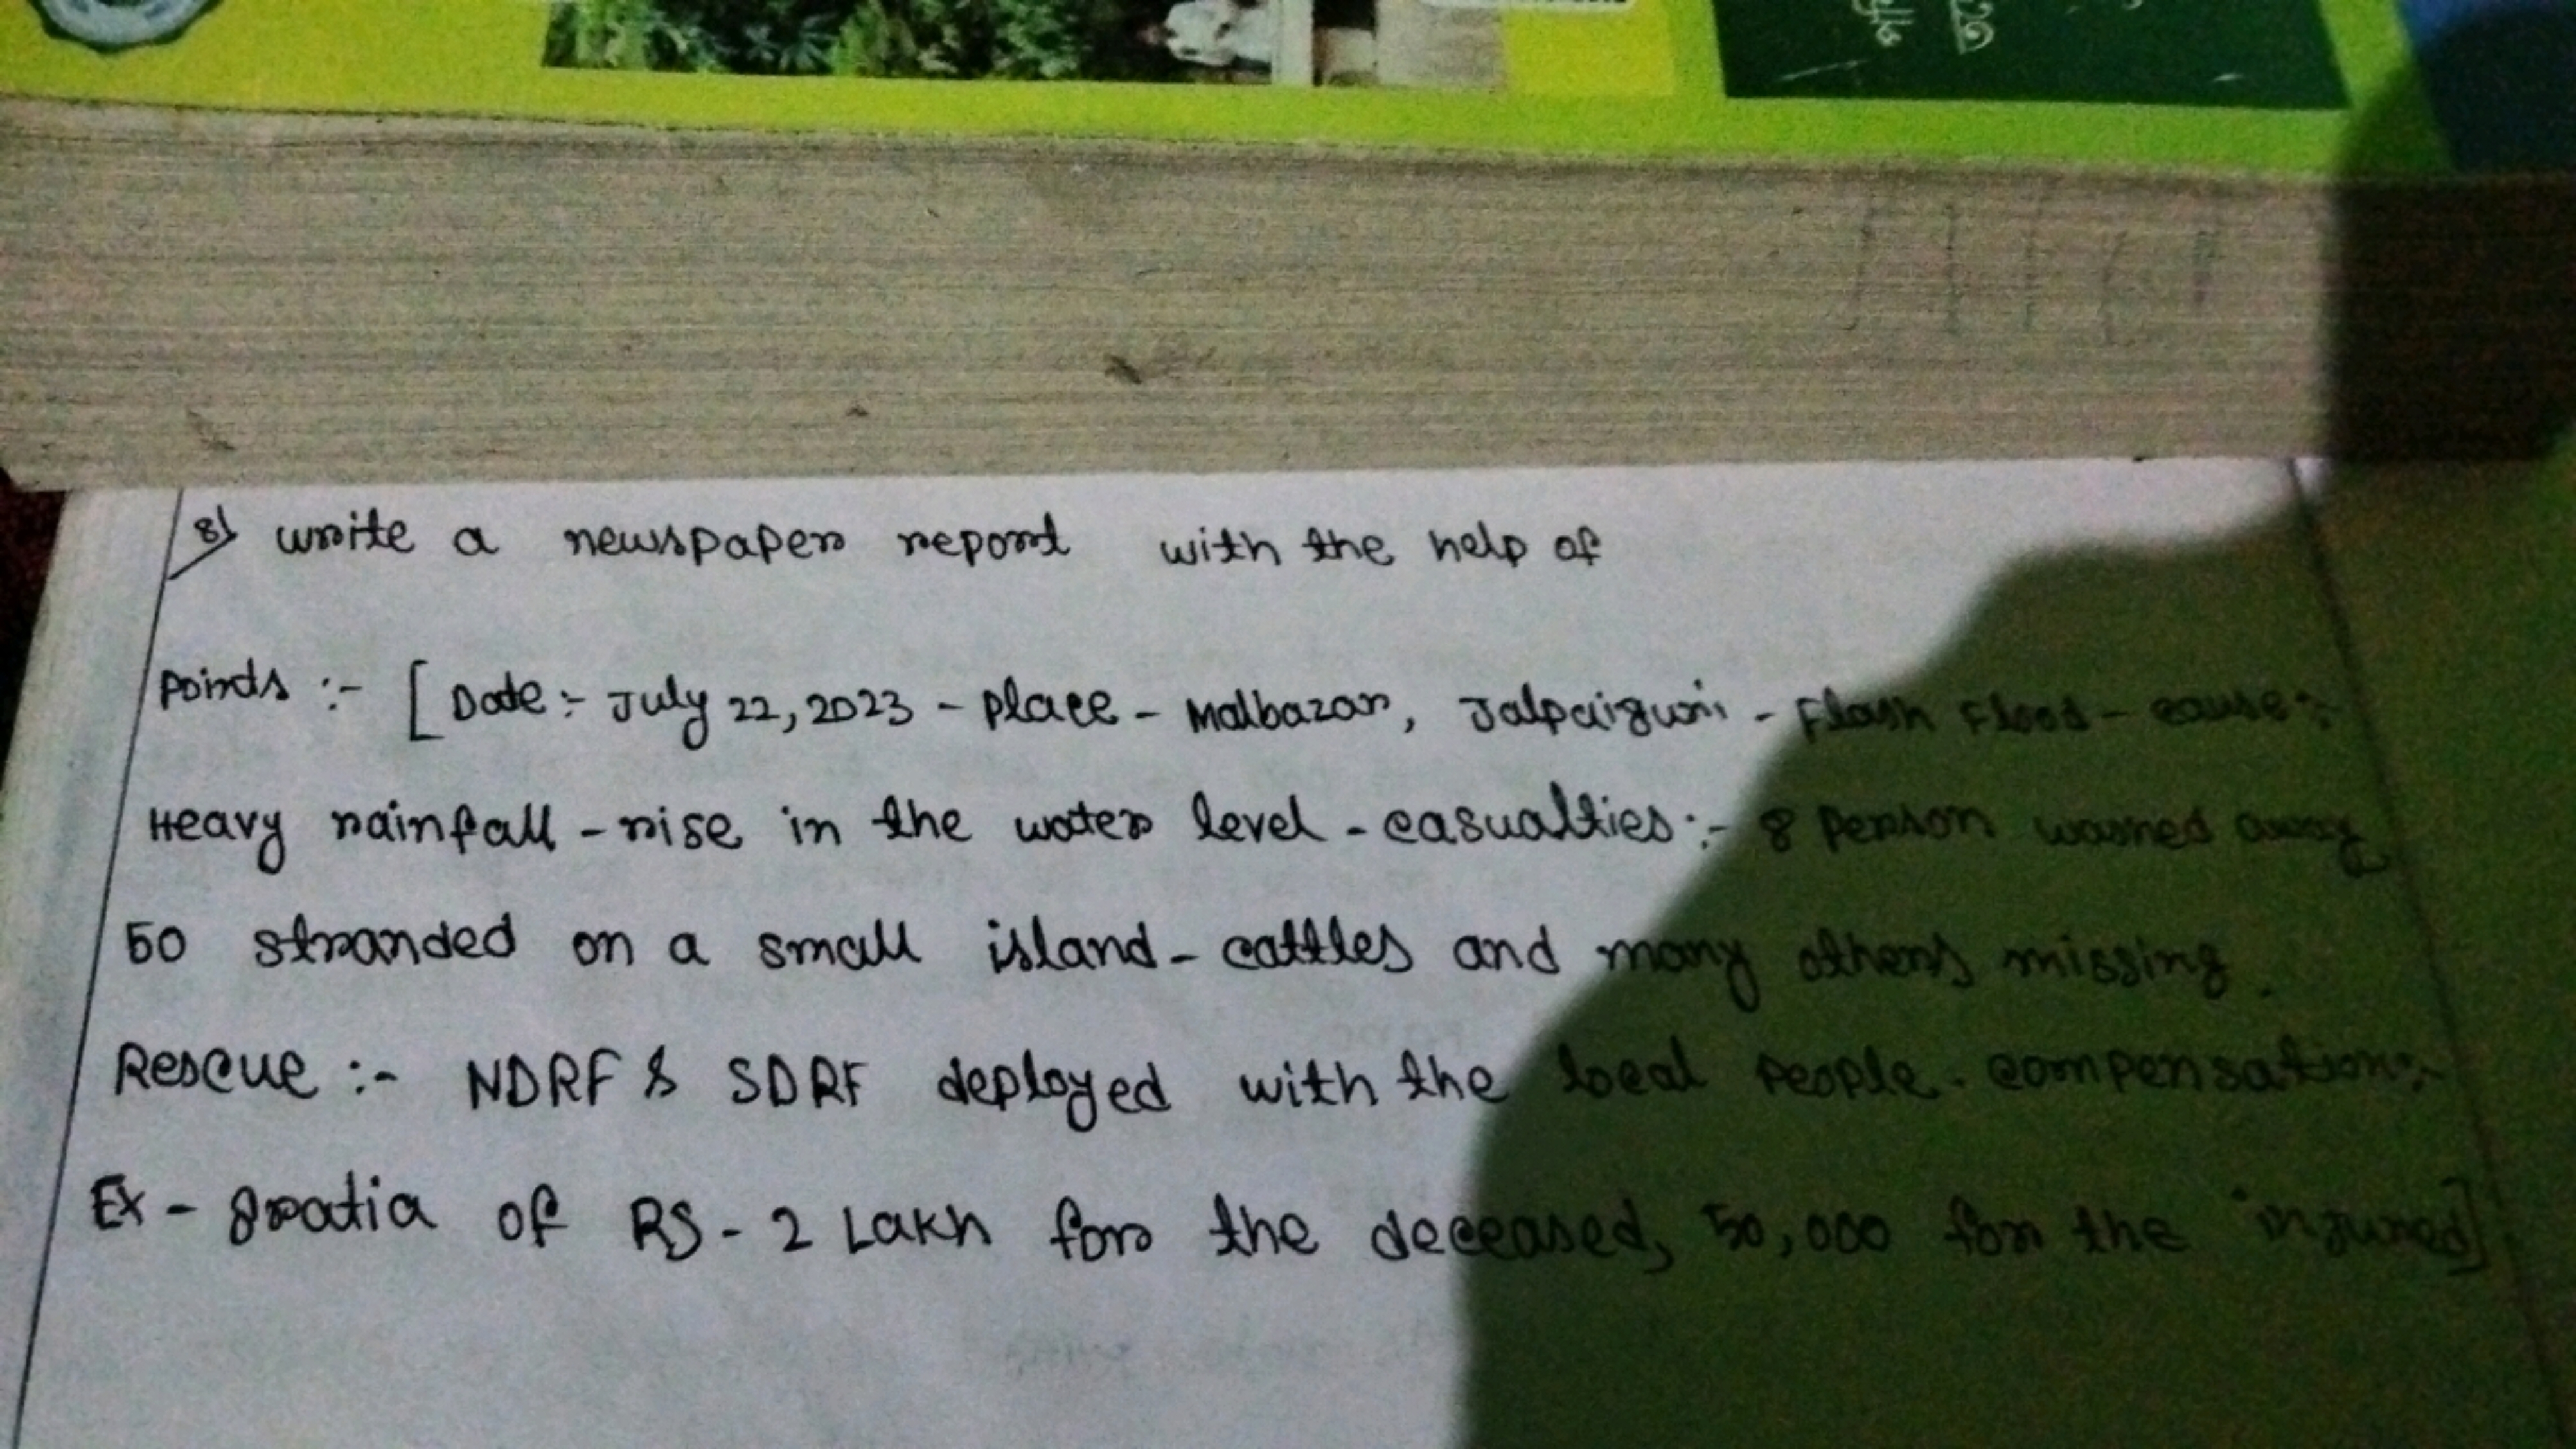 8) write a newspaper report with the help of
points :- [Date :- July 22, 2023 - place - Malbazar, Jalpaiguri - Flash Flood - cause :-
Heavy rainfall - rise in the water level - casualties :- 8 person washed away
50 stranded on a small island - cattles and many others missing.
Rescue :- NDRF & SDRF deployed with the local people. compensation :-
Ex - gratia of RS - 2 Lakh for the deceased, 50,000 for the injured]